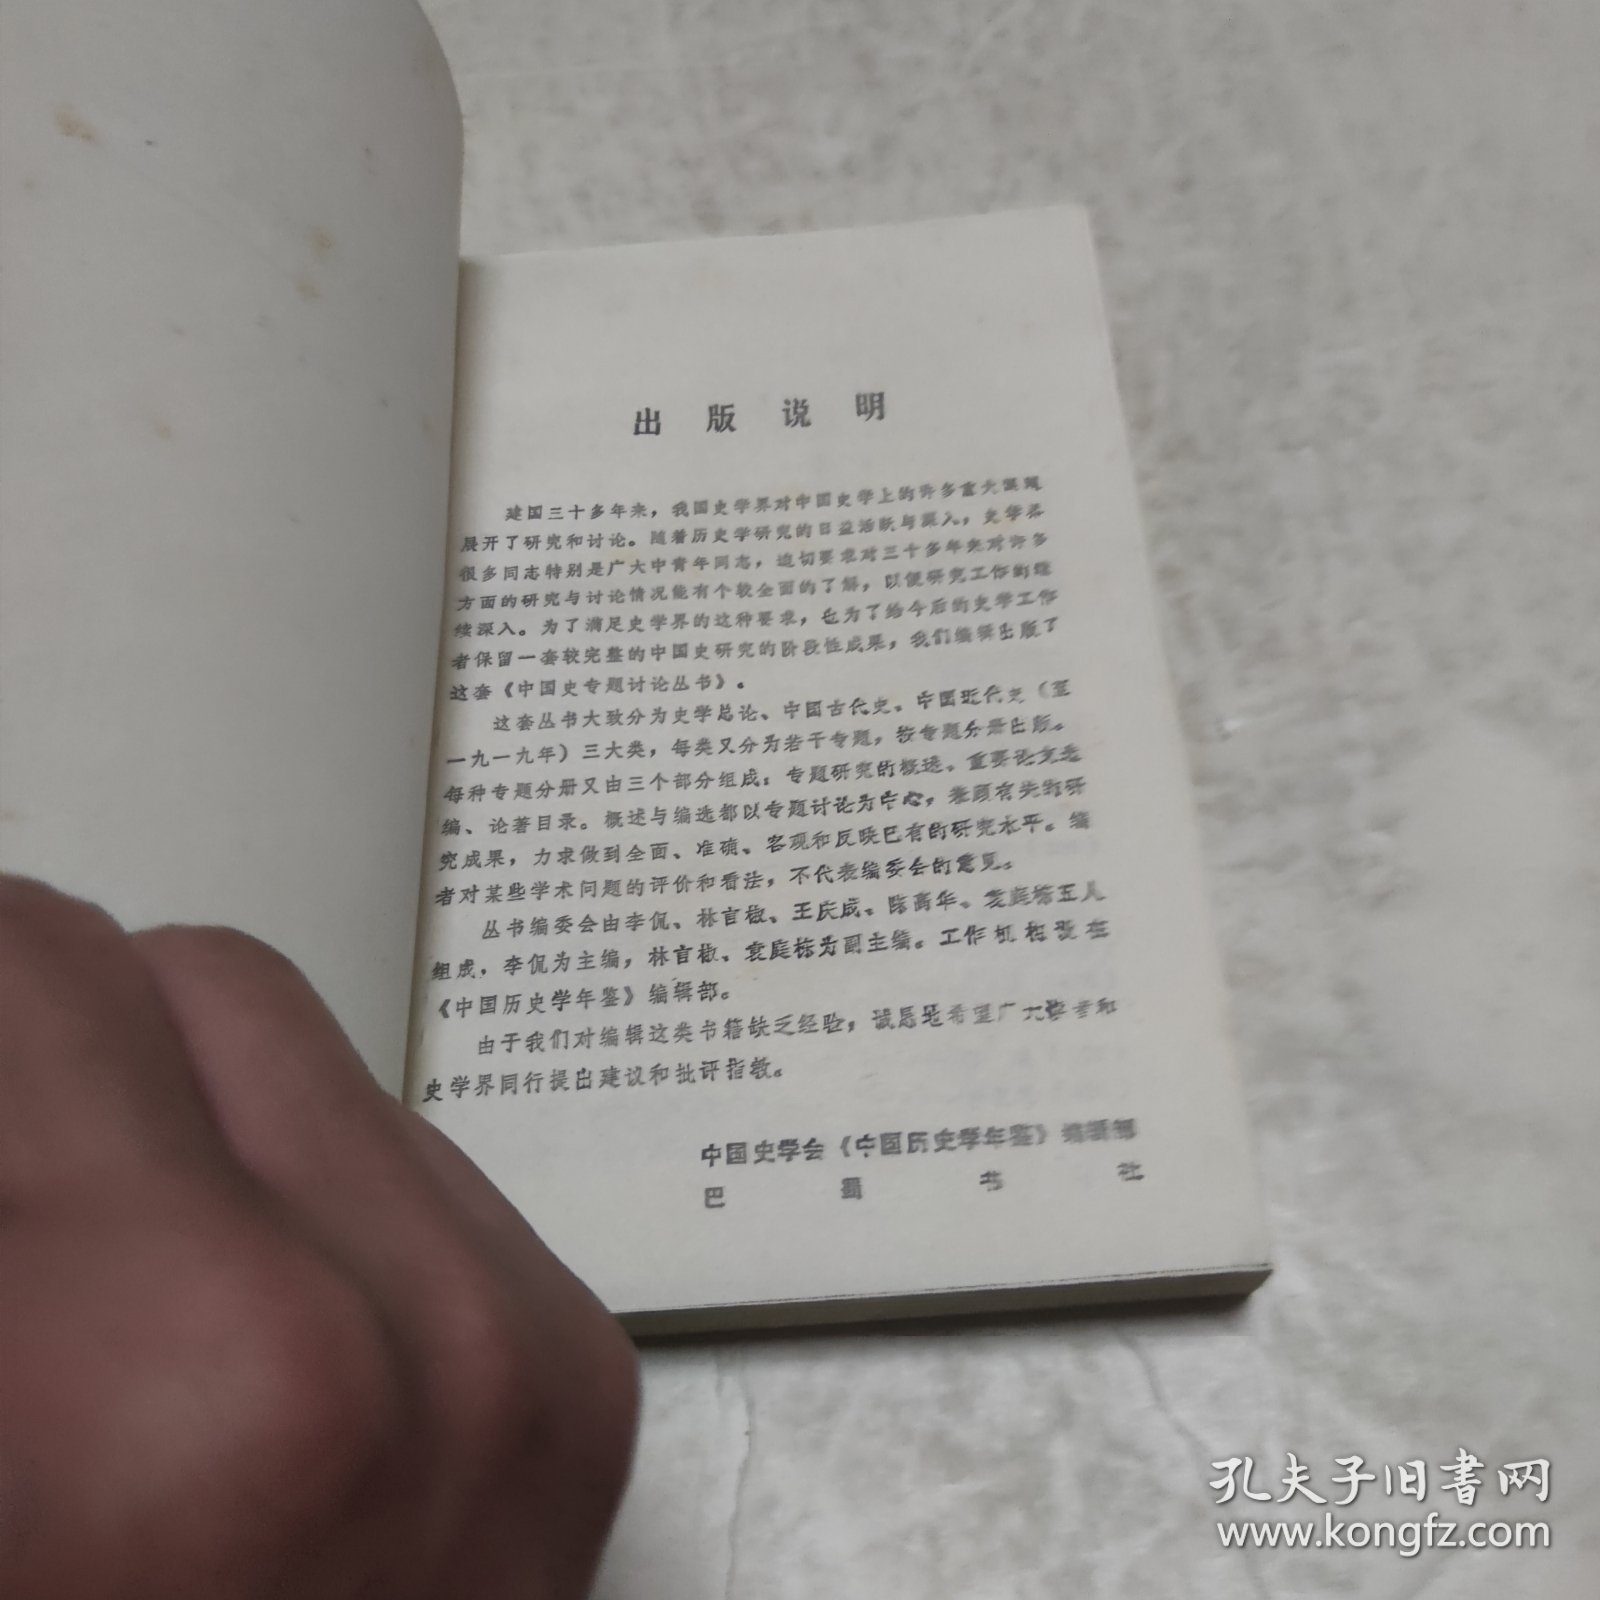 出版说明
建国三十多年来，我国史学界对中国史学上的许多重大课题
展开了研究和讨论。随着历史学研究的日益活跃与深入，史学界
很多同志特别是广大中青年同志，迫切要求对三十多年来对许多
方面的研究与讨论情况能有个较全面的了解，以便研究工作的继
续深入。为了满足史学界的这种要求，也为了给今后的史学工作
者保留一套较完整的中国史研究的阶段性成果，我们编辑出版了
这套《中国史专题讨论丛书》。
这套丛书大致分为史学总论、中国古代史、中国近代史（至
一九一九年）三大类，每类又分为若干专题，按专题分册出版。
每种专题分册又由三个部分组成：专题研究的概述、重要论文选
编、论著目录。概述与编选都以专题讨论为中心，兼顾有关的研
究成果，力求做到全面、准确、客观和反映已有的研究水平。编
者对某些学术问题的评价和看法，不代表编委会的意见。
丛书编委会由李侃、林言椒、王庆成、陈高华、袁庭栋五人
组成，李侃为主编，林言椒、袁庭栋为副主编。工作机构设在
《中国历史学年鉴》编辑部。
由于我们对编辑这类书籍缺乏经验，诚恳地希望广大读者和
史学界同行提出建议和批评指教。
中国史学会《中国历史学年鉴》编辑部
巴蜀书社
孔夫子旧书网
www.kongfz.com